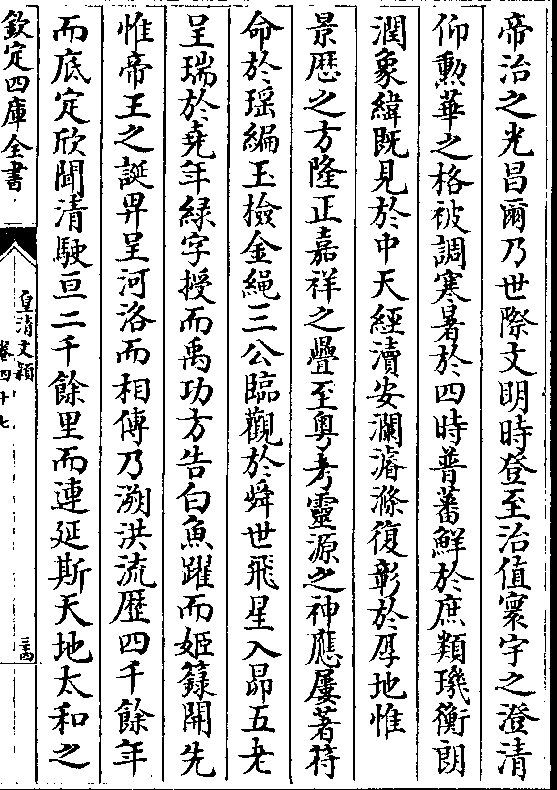 帝治之光昌爾乃世際文明時登至治值寰宇之澄清
仰勲華之格被調寒暑於四時普蕃鮮於庶類璣衡朗
潤象緯既見於中天經瀆安瀾濬滌復彰於厚地惟
景厯之方隆正嘉祥之疊至粤考靈源之神應屢著符
命於瑶編玉檢金繩三公臨觀於舜世飛星入昴五老
呈瑞於堯年緑字授而禹功方告白魚躍而姬籙開先
惟帝王之誕畀呈河洛而相傳乃溯洪流歴四千餘年
而底定欣聞清駛亘二千餘里而連延斯天地太和之
欽定四庫全書
皇清文穎
卷四十七